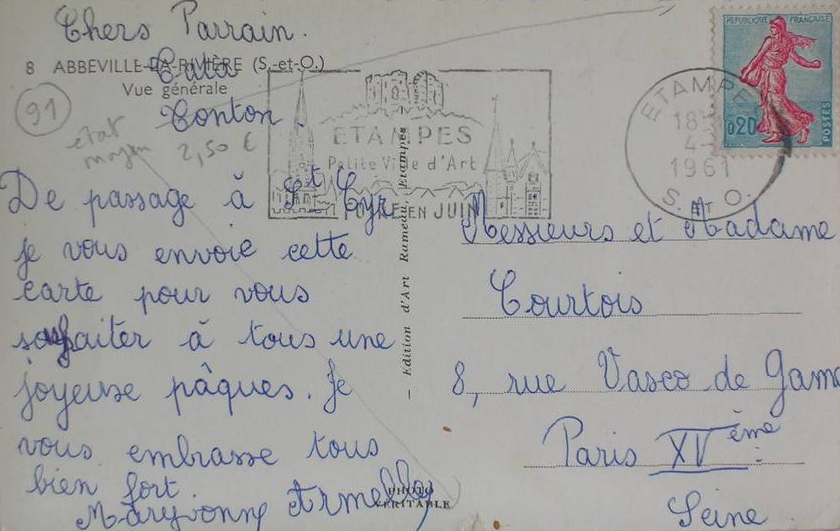 Chers Parrain.
8 ABBEVILLE-LA-RIVIÈRE (S.-et-O.)
Tata
Vue générale
Tonton
91
état
moyen 2,50 €
De passage à St Cyr
je vous envoie cette
carte pour vous
souhaiter à tous une
joyeuse pâques. Je
vous embrasse tous
bien fort.
Maryvonne Armelle
ETAMPES
Petite Ville d'Art
FOIRE EN JUIN
— Edition d'Art Rameau, Etampes
PHOTO
VÉRITABLE
RÉPUBLIQUE FRANÇAISE
0,20
POSTES
ETAMPES
18
4-
1961
S. ET O.
Messieurs et Madame
Courtois
8, rue Vasco de Gama
Paris XVème
Seine